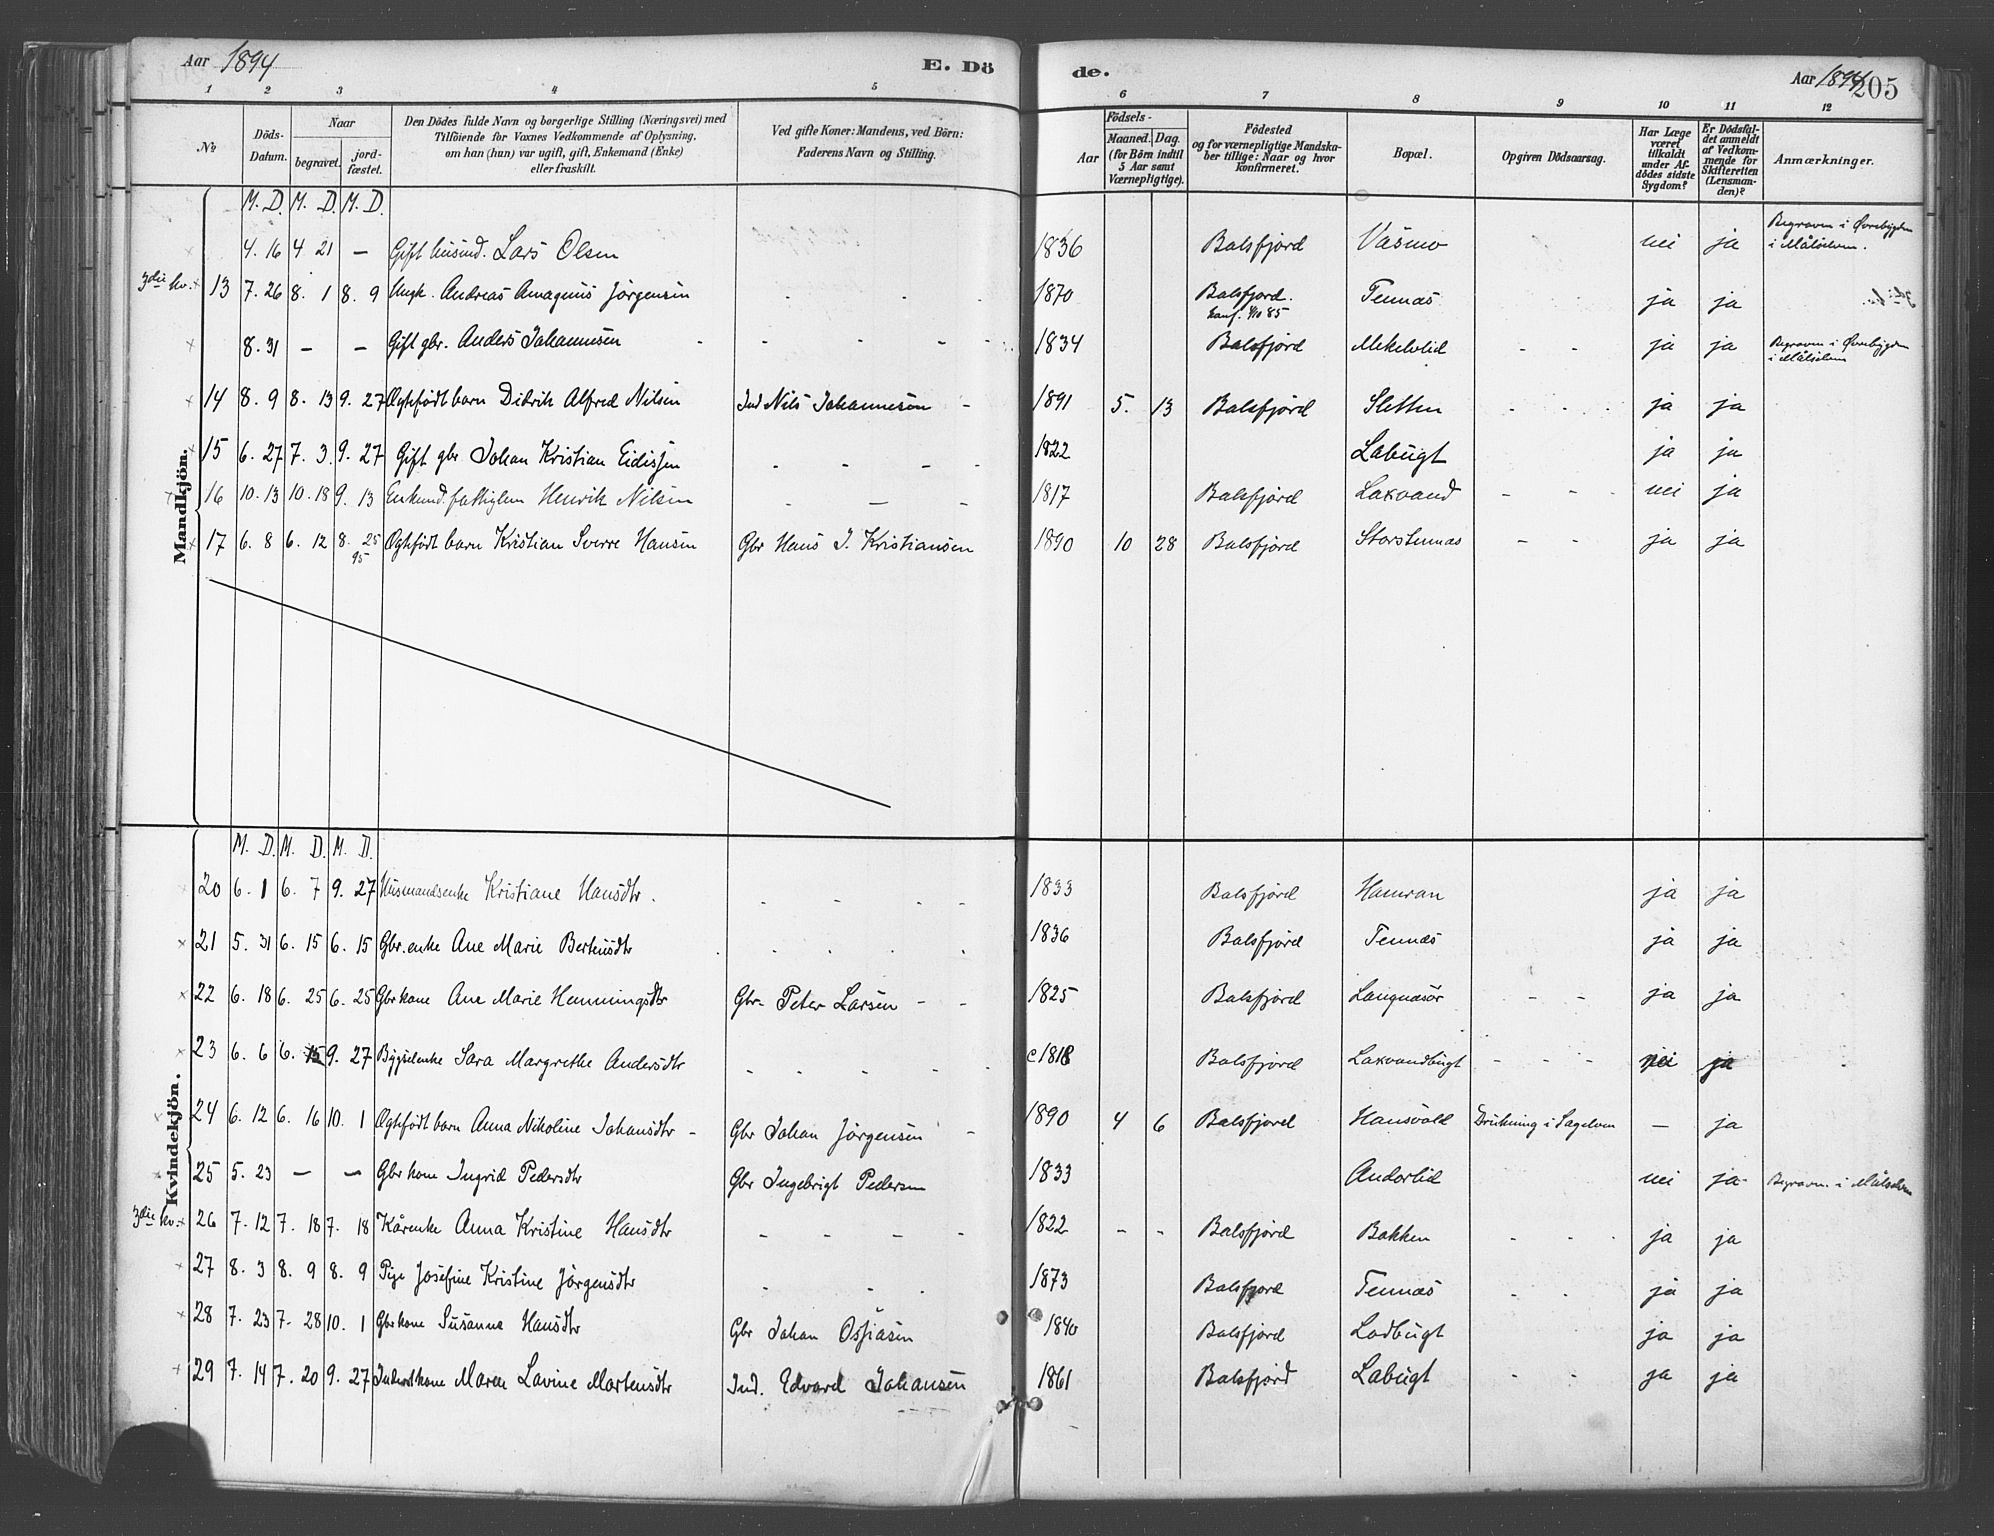 Aar 1894 E. Dö de. Aar 1894 205
1 2 3 4 5 6 7 8 9 10 11 12
No
Döds-Datum.
Naar
begravet. jord-fæstet.
Den Dödes fulde Navn og borgerlige Stilling (Næringsvei) med
Tilföiende for Voxnes Vedkommende af Oplysning,
om han (hun) var ugift, gift, Enkemand (Enke)
eller fraskilt.
Ved gifte Koner: Mandens, ved Börn:
Faderens Navn og Stilling.
Födsels-
Aar
Maaned. Dag.
(for Börn indtil
5 Aar samt
Værnepligtige).
Födested
og for værnepligtige Mandska-
ber tillige: Naar og hvor
konfirmeret.
Bopæl.
Opgiven Dödsaarsag.
Har Læge
været
tilkaldt
under Af-
dödes sidste
Sygdom?
Er Dödsfal-
det anmeldt
af Vedkom-
mende for
Skifteretten
(Lensman-
den)?
Anmærkninger.
Mandkjön.
M. D. M. D. M. D.
4. 16 4 21 — Gift husmd. Lars Olsen 1836 Balsfjord Vasmo nei ja Begraven i Øvrebygden
i Målselven.
3die kv. 13 7. 26 8. 1 8. 9 Ungk. Andreas Amagnus Jørgensen 1870 Balsfjord. Tennæs ja ja
konf. 4/10 85
8. 31 — — Gift gbr. Anders Johannesen 1834 Balsfjord ja ja Begraven i Øvrebygden
i Målselven
14 8. 9 8. 13 9. 27 Ægtefødt barn Didrik Alfred Nilsen Ind Nils Johannesen 1891 5. 13 Balsfjord Sletten ja ja
15 6. 27 7. 3 9. 27 Gift gbr. Johan Kristian Eidissen 1822 Labugt ja ja
16 10. 13 10. 18 9. 13 Enkemd. fattiglem Henrik Nilsen 1817 Balsfjord Laxvand nei ja
17 6. 8 6. 12 8. 25 Ægtefødt barn Kristian Sverre Hansen Gbr Hans J. Kristiansen 1890 10 28 Balsfjord Storstennæs ja ja
95
Kvindekjön.
M. D. M. D. M. D.
20 6. 1 6. 7 9. 27 Husmandsenke Kristiane Hansdtr. 1833 Balsfjord Hamran ja ja
21 5. 31 6. 15 6. 15 Gbr. enke Ane Marie Berteusdtr 1836 Balsfjord Tennæs ja ja
22 6. 18 6. 25 6. 25 Gbr kone Ane Marie Henningsdtr Gbr. Peter Larsen 1825 Balsfjord Langnæsør ja ja
23 6. 6 6. 15 9. 27 Bygselenke Sara Margrethe Andersdtr c 1818 Balsfjord Laxvandbugt nei ja
24 6. 12 6. 16 10. 1 Ægtefødt barn Anna Nikoline Johansdtr Gbr Johan Jørgensen 1890 4 6 Balsfjord Hansvold Drukning i Sagelven — ja
25 5. 23 — — Gbr kone Ingrid Pedersdtr Gbr Ingebrigt Pedersen 1833 Andorlid nei ja Begraven i Målselven
3die kv. 26 7. 12 7. 18 7. 18 Kårenke Anna Kristine Hansdtr 1822 - - Balsfjord Bakken ja ja
27 8. 3 8. 9 8. 9 Pige Josefine Kristine Jørgensdtr 1873 Balsfjord Tennæs ja ja
28 7. 23 7. 28 10. 1 Gbr kone Susanna Hansdtr Gbr Johan Ossiasen 1840 Balsfjord Ladbugt ja ja
29 7. 14 7. 20 9. 27 Inderstkone Maren Lavine Martensdtr Ind. Edvard Johansen 1861 Balsfjord Labugt ja ja